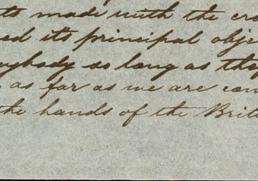 ts made with the cro
ed its principal objec
nybody so long as they
as far as we are con
the hands of the Brit